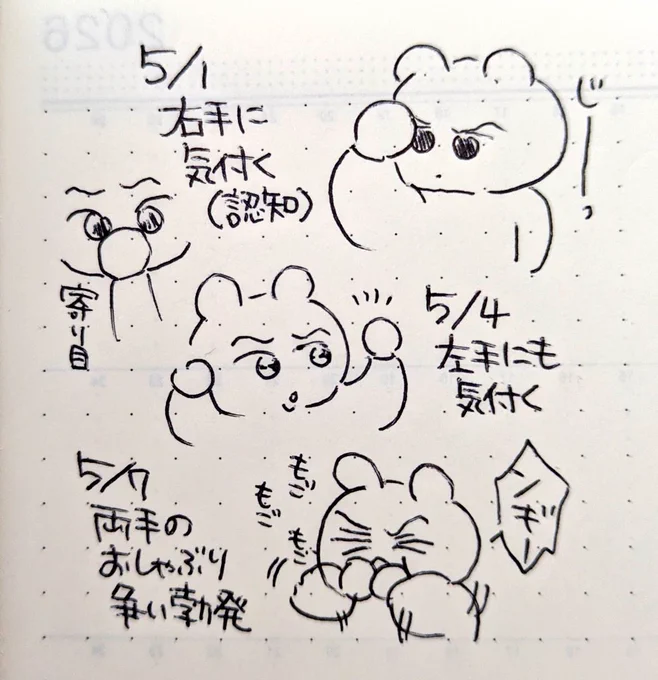 5/1
右手に
気付く
(認知)
じーっ
寄り目
5/4
左手にも
気付く
5/7
両手の
おしゃぶり
争い勃発
もご
もご
もご
ンギー